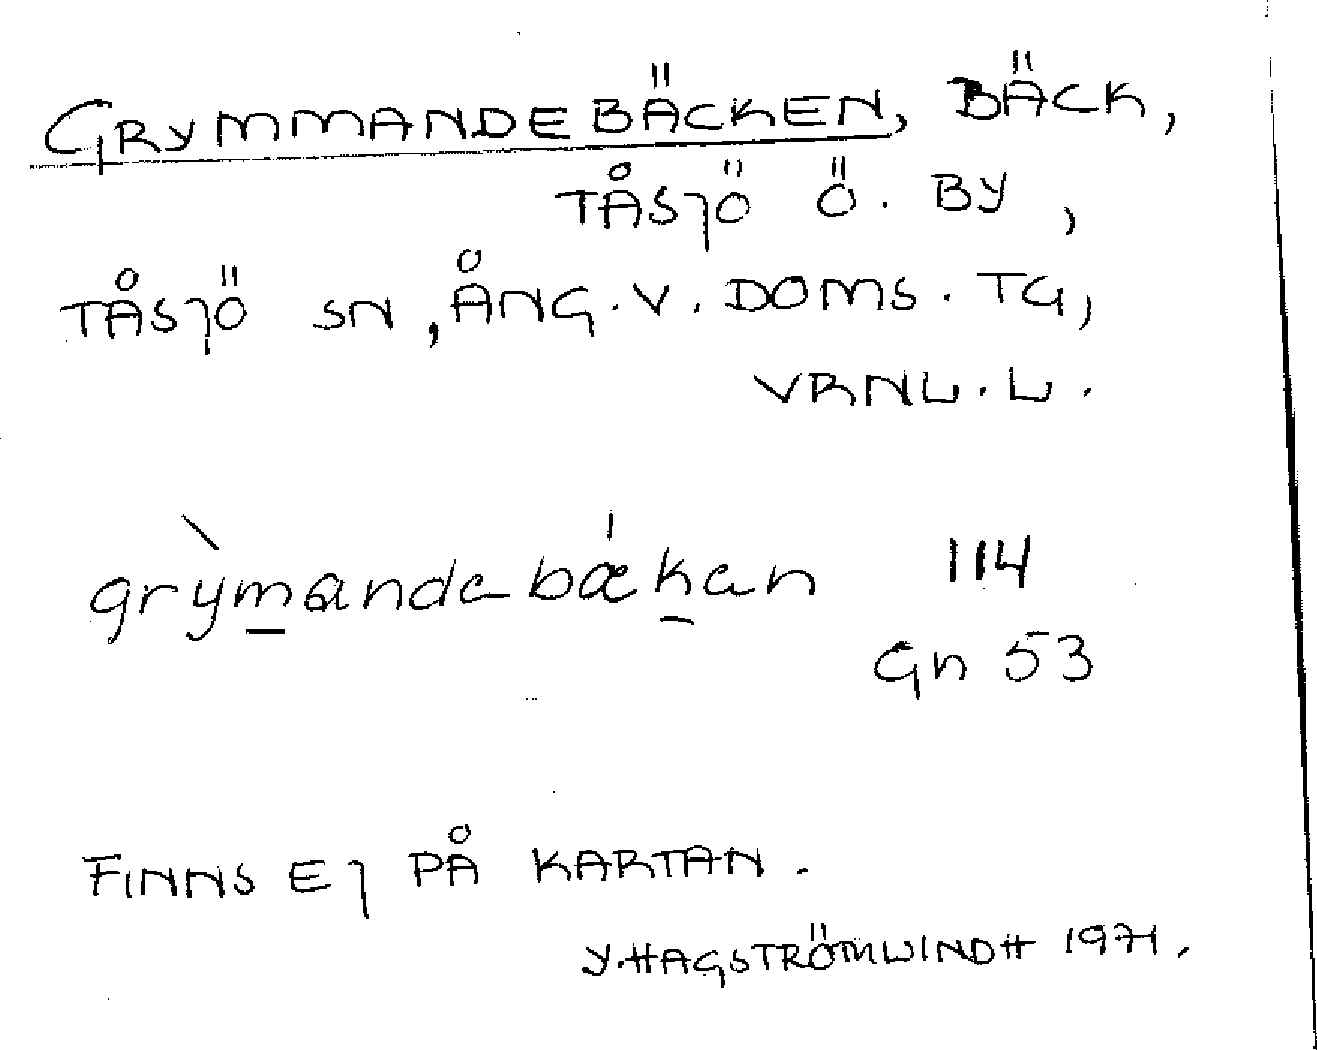 GRYMMANDEBÄCKEN, BÄCK,
TÅSJÖ Ö. BY,
TÅSJÖ SN, ÅNG. V. DOMS. TG,
VRNL. L.
grỳmandebækan 114
Gn 53
FINNS EJ PÅ KARTAN.
Y. HAGSTRÖMWINDH 1971.